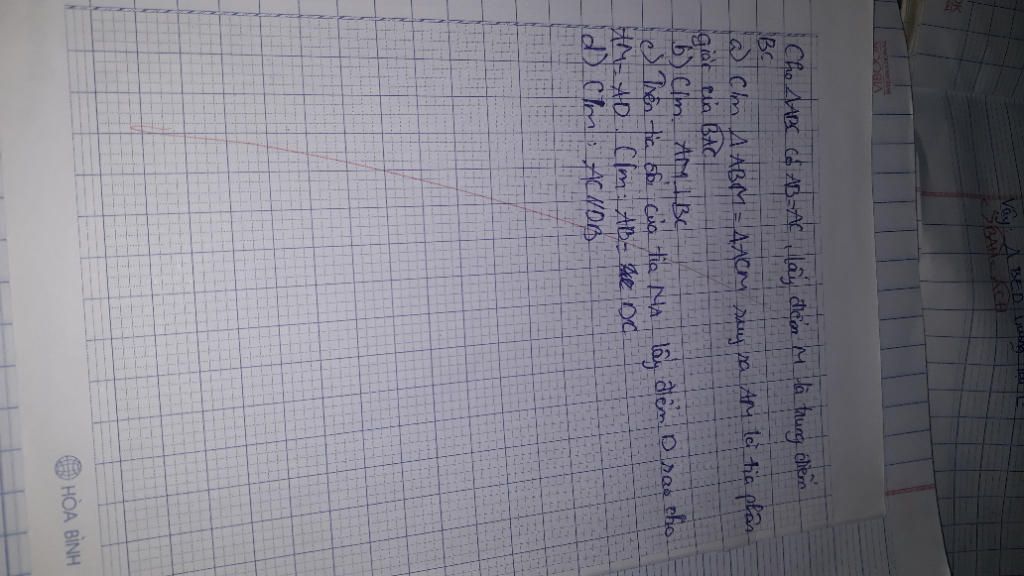 Cho ΔABC có AB=AC, lấy điểm M là trung điểm
BC
a) C/m ΔABM = ΔACM suy ra AM là tia phân
giác của BAC
b) C/m AM⊥BC
c) Trên tia đối của tia MA lấy điểm D sao cho
AM=AD. C/m: AB= DC
d) C/m: AC//DB
HÒA BÌNH
Vậy Δ BED